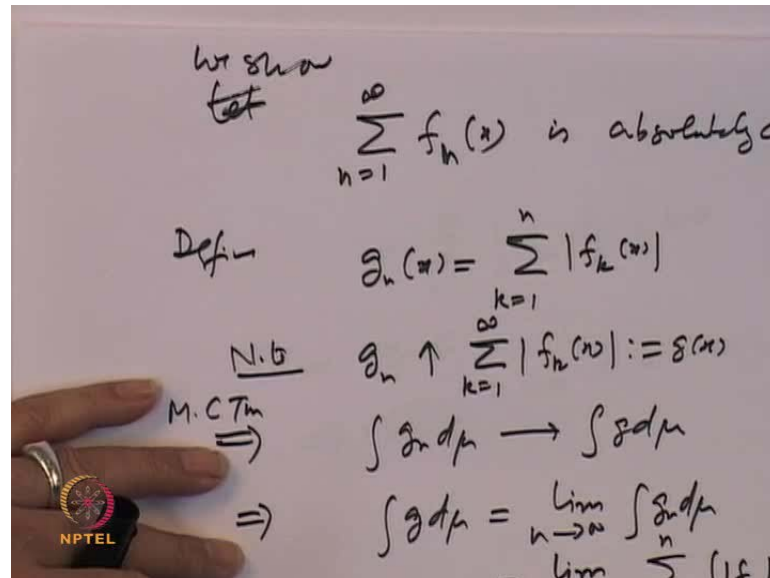 We show
∑_{n=1}^{∞} f_n(x) is absolutely c
Defin g_n(x) = ∑_{k=1}^{n} |f_k(x)|
N.G g_n ↑ ∑_{k=1}^{∞} |f_k(x)| := g(x)
M.C Tm
⇒ ∫ g_n dμ → ∫ g dμ
⇒ ∫ g dμ = lim_{n→∞} ∫ g_n dμ
lim ∑^{n} (|f
NPTEL